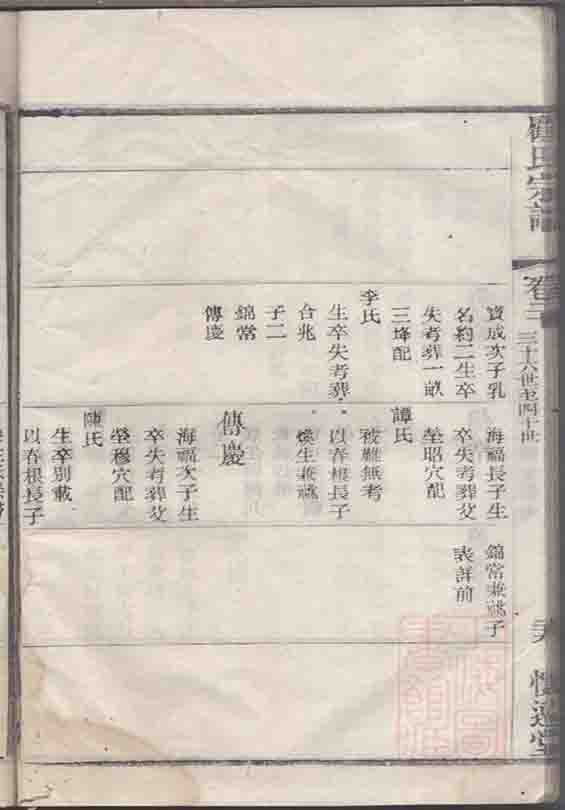 氏宗譜
卷
三十六世至四十世
寶成次子乳
名約二生卒
失考葬一畝
三垰配
李氏
生卒失考葬
合兆
子二
錦當
傳慶
海福長子生
卒失考葬父
塋昭穴配
譚氏
被難無考
以春根長子
煥生兼祧
傳慶
海福次子生
卒失考葬父
塋穆穴配
陳氏
生卒別載
以春根長子
錦當兼祧子
表詳前
堂